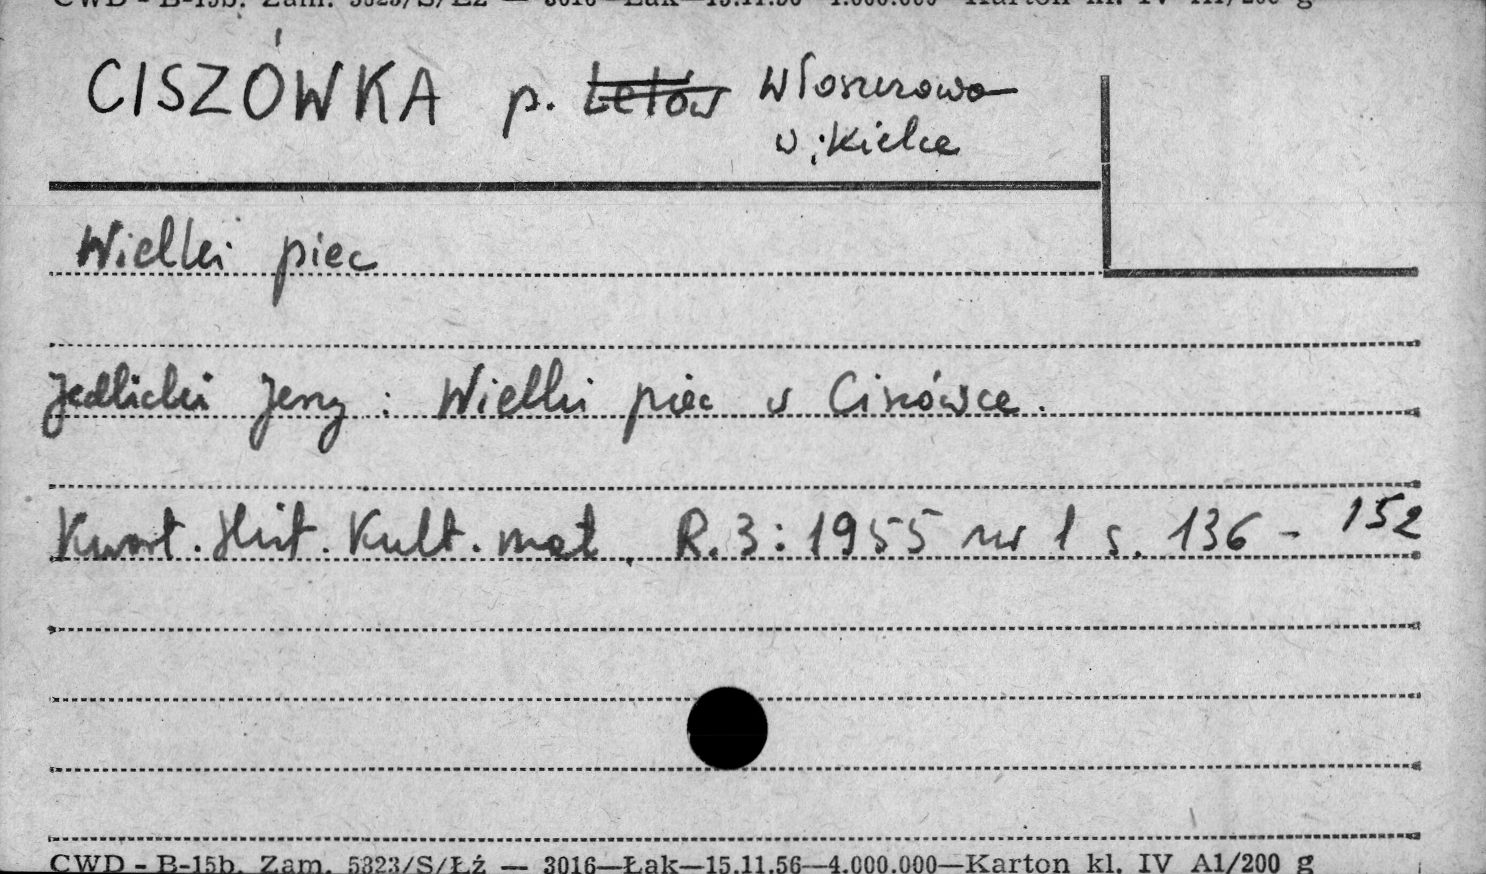 CWD - B-15b. Zam. 5323/S/Łż — 3016—Łak—15.11.56—4.000.000—Karton kl. IV A1/200 g
CISZÓWKA p. Lelów Włoszczowa
w. Kielce
Wielki piec
Jedlicki Jerzy : Wielki piec w Ciszówce.
Kwart. Hist. Kult. mat. R. 3 : 1955 nr 1 s. 136 - 152
CWD - B-15b. Zam. 5323/S/Łż — 3016—Łak—15.11.56—4.000.000—Karton kl. IV A1/200 g